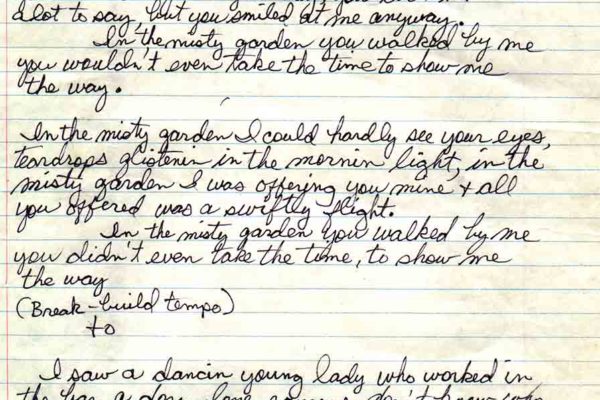 a lot to say, but you smiled at me anyway.
In the misty garden you walked by me
you wouldn't even take the time to show me
the way.
In the misty garden I could hardly see your eyes,
teardrops glistenin in the mornin light, in the
misty garden I was offering you mine + all
you offered was a swiftly flight.
In the misty garden you walked by me
you didn't even take the time, to show me
the way
(Break-build tempo)
to
I saw a dancin young lady who worked in
the bar a
don't know who